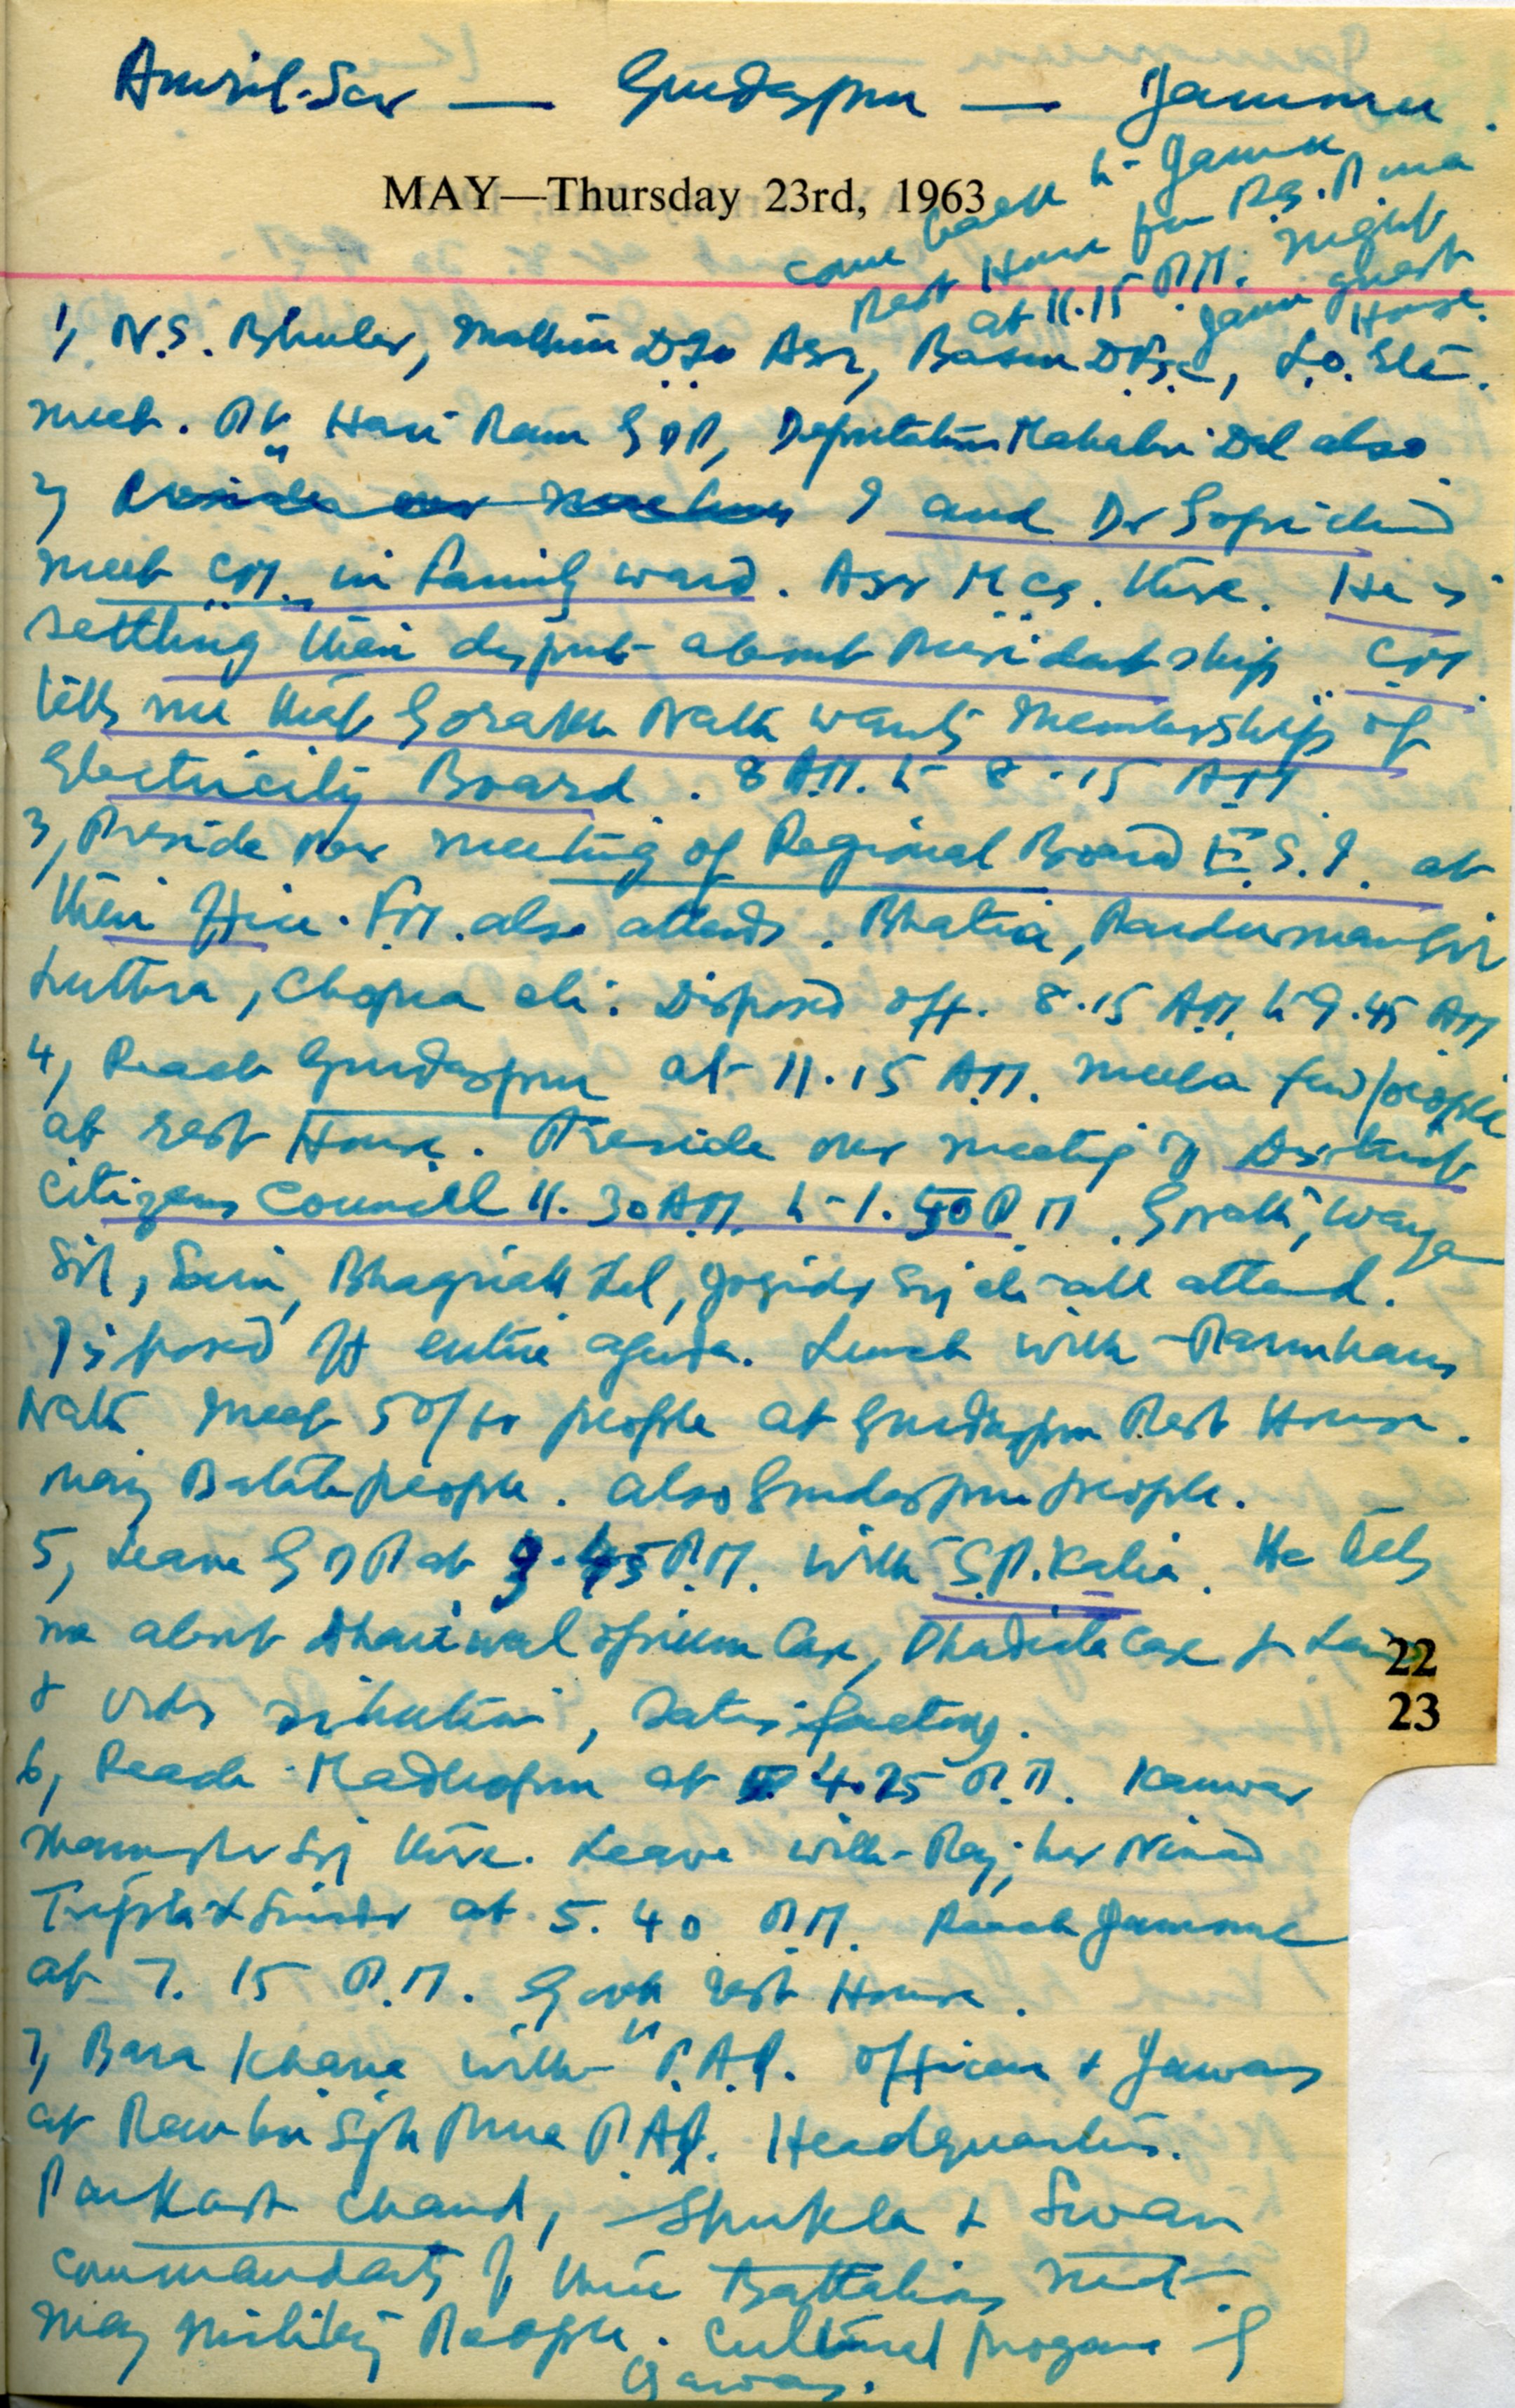 Amrit-Sar — Gurdaspur — Jammu.
MAY—Thursday 23rd, 1963
come back to Jammu
Rest House from Rg. Pura
at 11.15 P.M. Night
Jammu guest
House.
1, N.S. Bhuler, DSo Asr, L.O. Ele.
meet. Pt. Hari Ram GDP, Deputation Mahabir Dal also.
2, I and Dr Gopi Chand
meet CM. in family ward. Asr M Cs. there. He is
settling their disput about Presidentship. CM.
tells me that Gorakh Nath wants Membership of
Electricity Board. 8 A.M. to 8.15 AM.
3, Preside over meeting of Regional Board E.S.I. at
their office. F.M. also attends. Bhatia,
Luthra, Chopra etc. Disposed off. 8.15 A.M. to 9.45 AM
4, Reach Gurdaspur at 11.15 A.M. meet a few people
at rest House. Preside over meeting of District
Citizens Council 11.30 AM. to 1.50 P.M.
Sil, Saini, Lal, etc all attend.
Disposed off entire agenda. Lunch with
Nath meet 50/60 people at Gurdaspur Rest House.
many Batala people. also Gurdaspur people.
5, Leave GDP at 3.45 P.M. with S.P. Kalia. He tells
me about Dhariwal opium Case, case & Law
& order situation, satisfactory.
6, Reach Madhopur at 4.25 P.M. Kanwar
there. Leave with
Tripta & at 5.40 P.M. Reach Jammu
at 7.15 P.M. Govt rest House.
7, Bara Khana with P.A.P. officers & Jawans
at Ranbir Singh Pura P.A.P. Headquarters.
Parkash Chand, Shukla &
commandants of three Battalions met.
many military People. Cultural Programe of
Jawans.
22
23